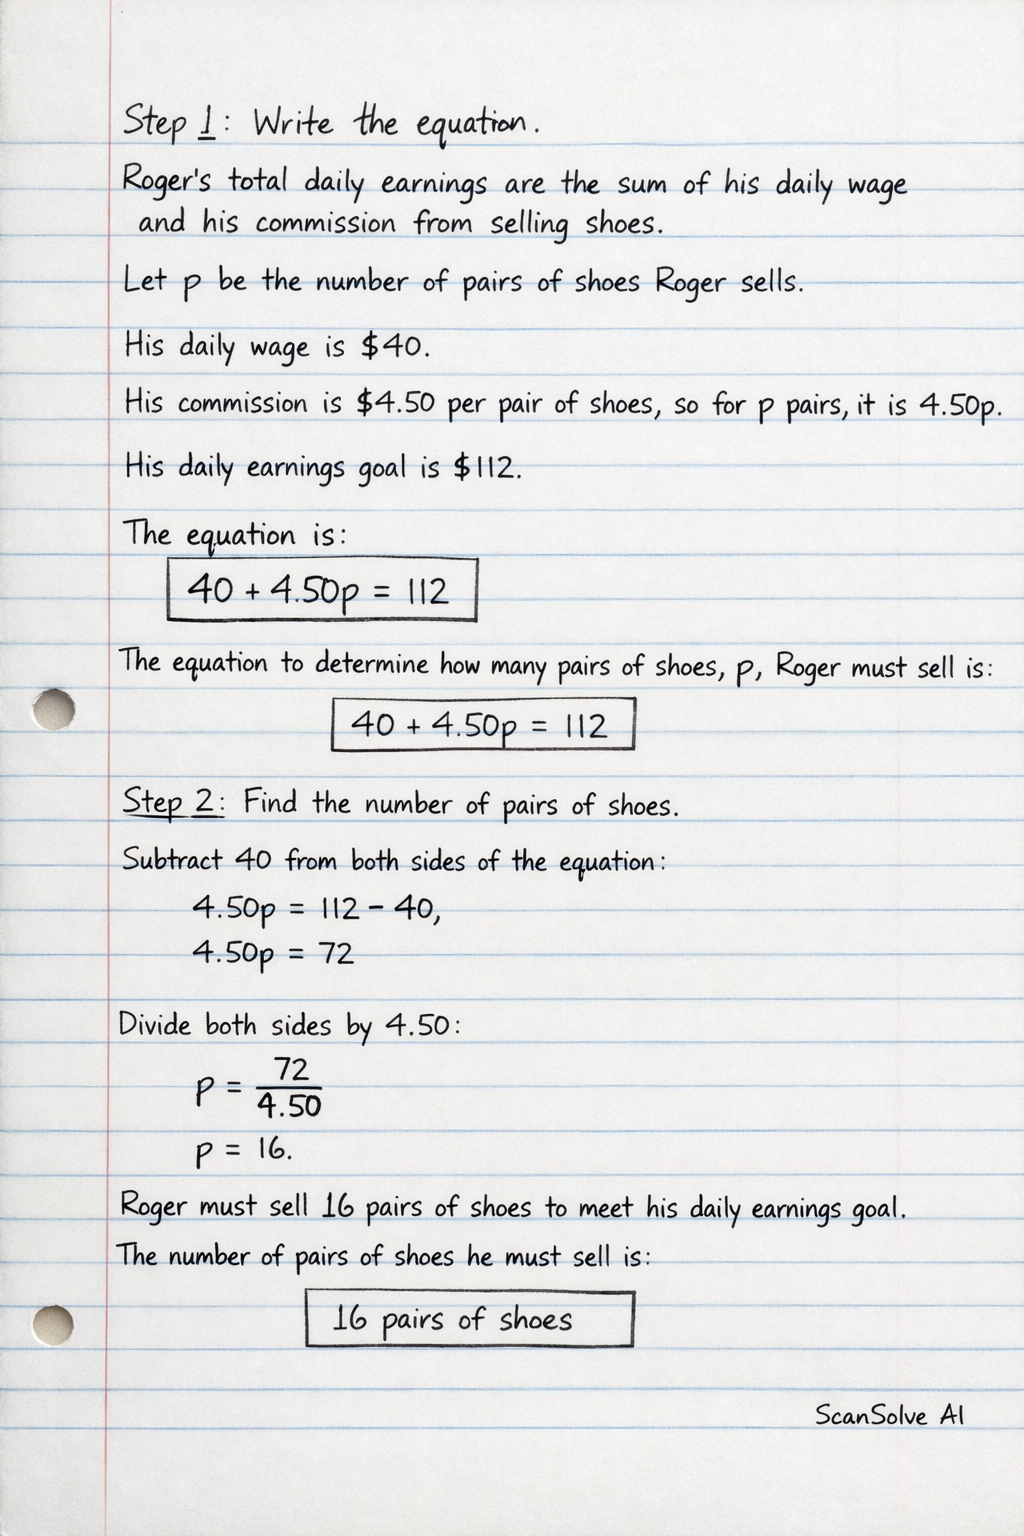 Step 1: Write the equation.
Roger's total daily earnings are the sum of his daily wage
and his commission from selling shoes.
Let p be the number of pairs of shoes Roger sells.
His daily wage is $40.
His commission is $4.50 per pair of shoes, so for p pairs, it is 4.50p.
His daily earnings goal is $112.
The equation is:
40 + 4.50p = 112
The equation to determine how many pairs of shoes, p, Roger must sell is:
40 + 4.50p = 112
Step 2: Find the number of pairs of shoes.
Subtract 40 from both sides of the equation:
4.50p = 112 - 40,
4.50p = 72
Divide both sides by 4.50:
p = 72/4.50
p = 16.
Roger must sell 16 pairs of shoes to meet his daily earnings goal.
The number of pairs of shoes he must sell is:
16 pairs of shoes
ScanSolve AI